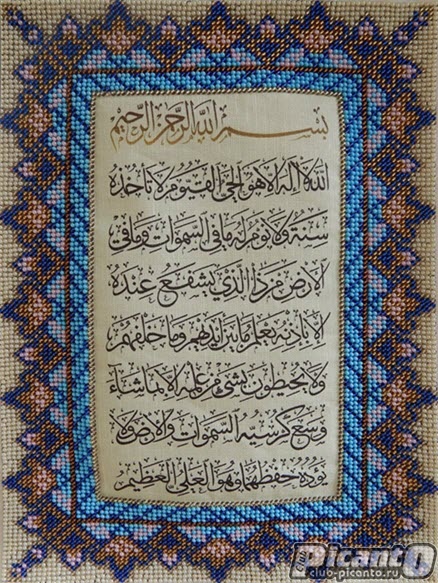 بسم الله الرحمن الرحيم
الله لا اله الا هو الحي القيوم لا تاخذه
سنة ولا نوم له ما في السموات وما في
الارض من ذا الذي يشفع عنده
الا باذنه يعلم ما بين ايديهم وما خلفهم
ولا يحيطون بشئ من علمه الا بما شاء
وسع كرسيه السموات والارض ولا
يؤده حفظهما وهو العلي العظيم
Picanto
club-picanto.ru